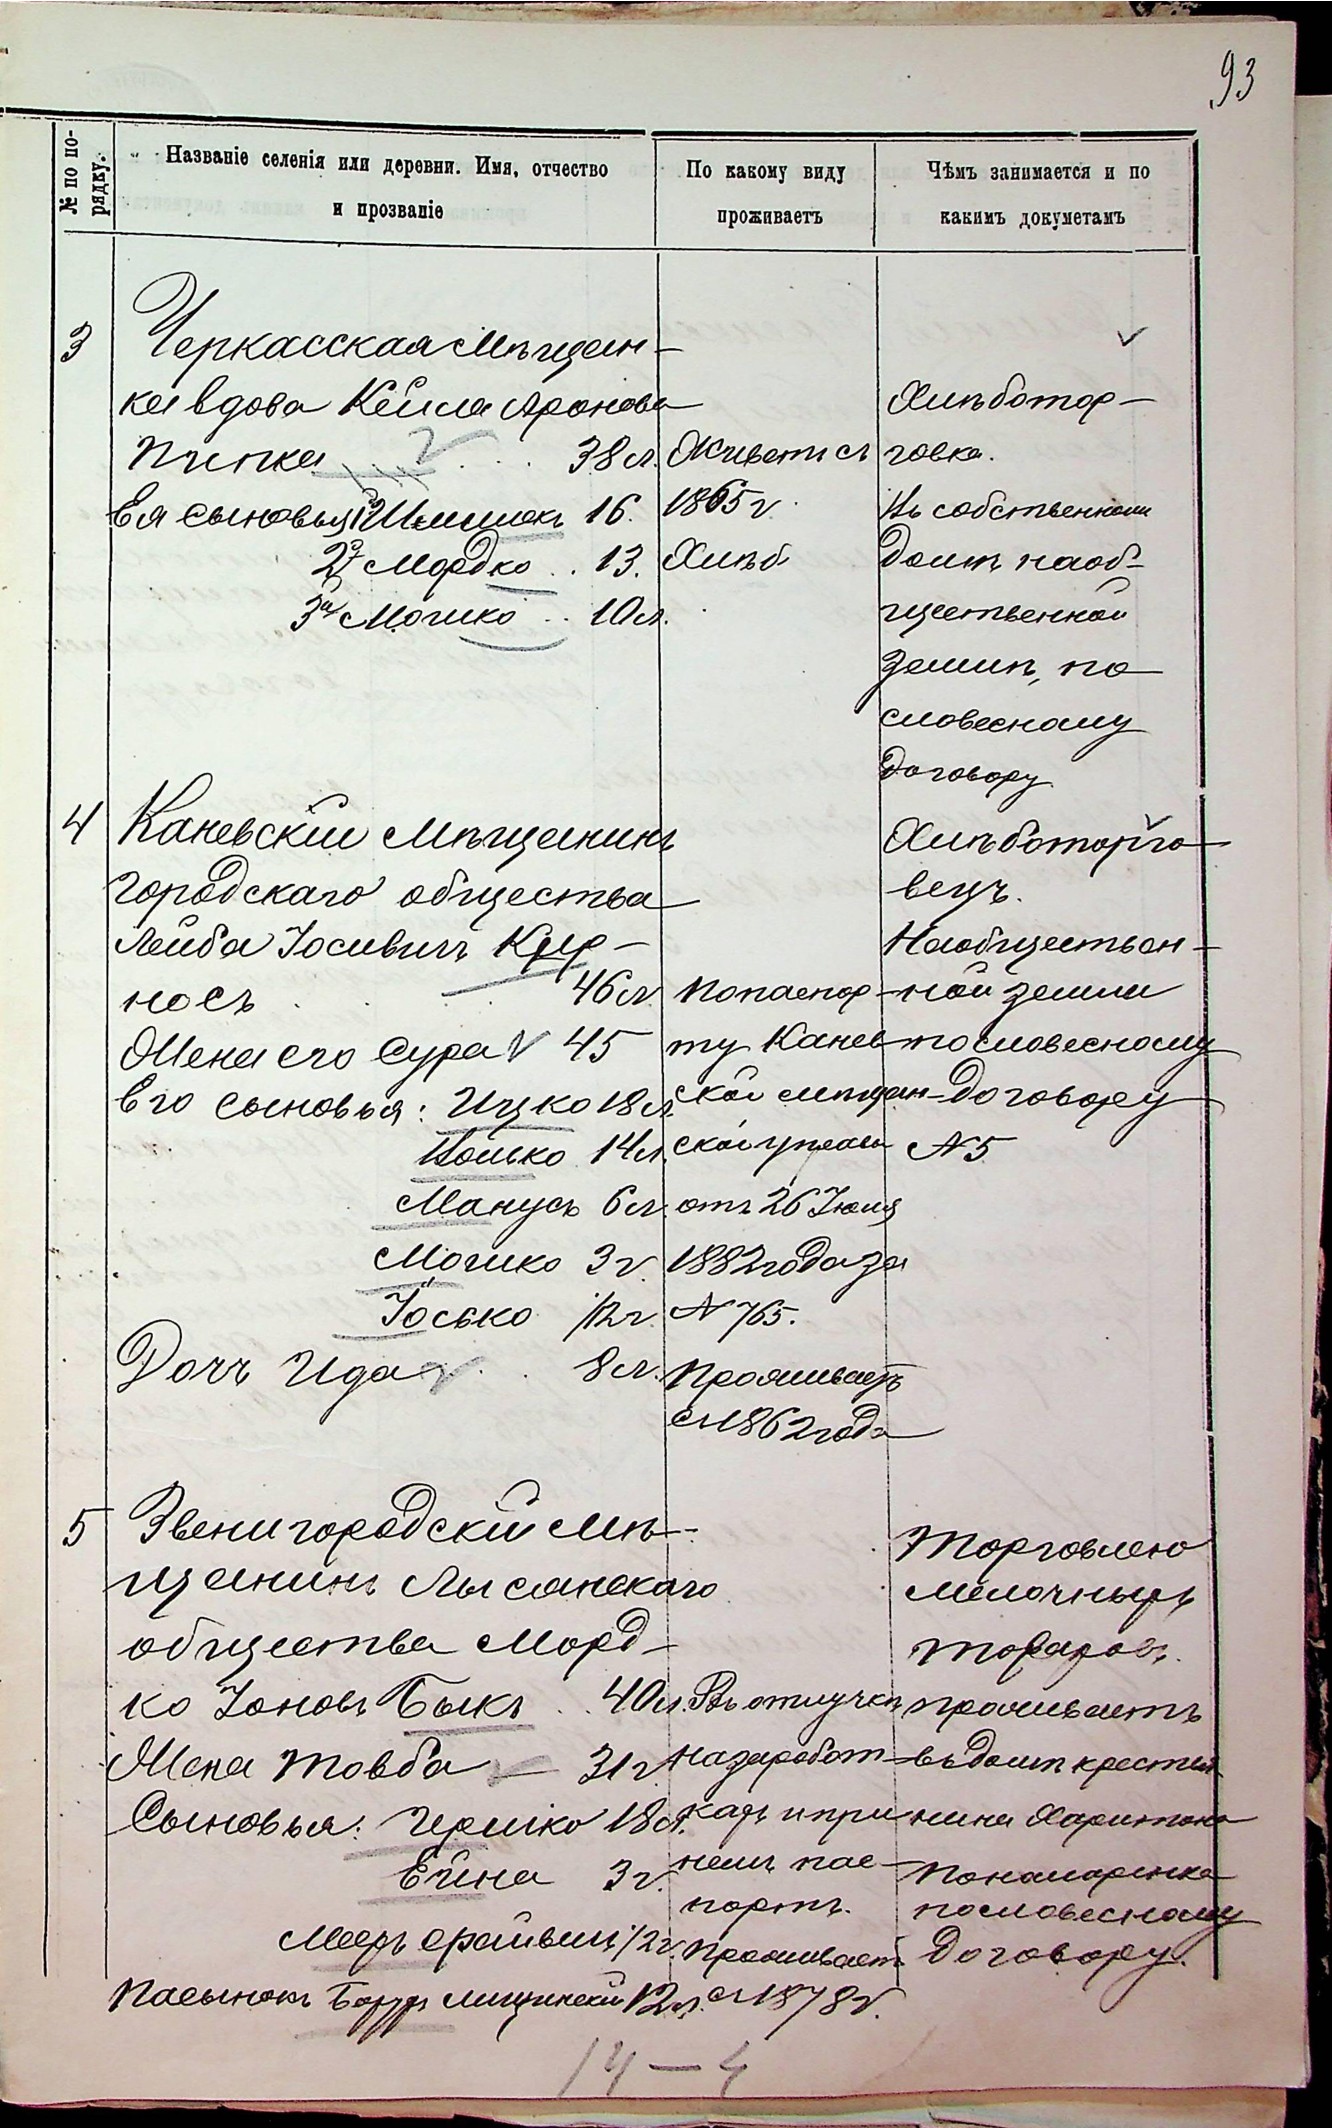 93
№ по по-
рядку.
Названіе селенія или деревни. Имя, отчество
и прозваніе
По какому виду
проживаетъ
Чѣмъ занимается и по
какимъ докуметамъ
3
Черкасская Мѣщан-
ка вдова Кейла Аронова
38 л.
Ея сыновья 1й 16.
2й Мордко . . 13.
3й Мошко . . 10 л.
Живетъ съ
1865 г.
Хлѣб
Хлѣботор-
говка.
Въ собственном
домѣ на об-
щественной
землѣ, по
словесному
договору
4
Каневскій Мѣщанинъ
городскаго общества
Лейба Іосивичъ Кир-
носъ . . . 46 л.
Жена его Сура 45
Его сыновья: Ицко 18 л.
14 л.
Манусъ 6 л.
Мошко 3 г.
Іосько 1/2 г.
Дочь Ида . . 8 л.
По паспор-
ту Канев
ской мѣщан-
ской управы
отъ 26 Іюля
1882 года за
N 765.
Проживаетъ
съ 1862 года
Хлѣботорго-
вецъ.
На обществен-
ной земли
по словесному
договору
N 5
5
Звенигородскій Мѣ-
щанинъ Лысянскаго
общества Морд-
ко Іоновъ Быкъ . . 40 л.
Жена Товба — 31 г.
Сыновья: Гершко 18 л.
Ейна 3 г.
1/2 г.
Пасынокъ Борухъ 12 л.
Въ отлучкѣ
на заработ-
кахъ и при
немъ пас-
портъ.
Проживаетъ
съ 1878 г.
Торговлею
мелочныхъ
товаровъ.
проживаетъ
въ домѣ крестья
нина Харитона
Понамаренка
по словесному
договору.
14 — 4